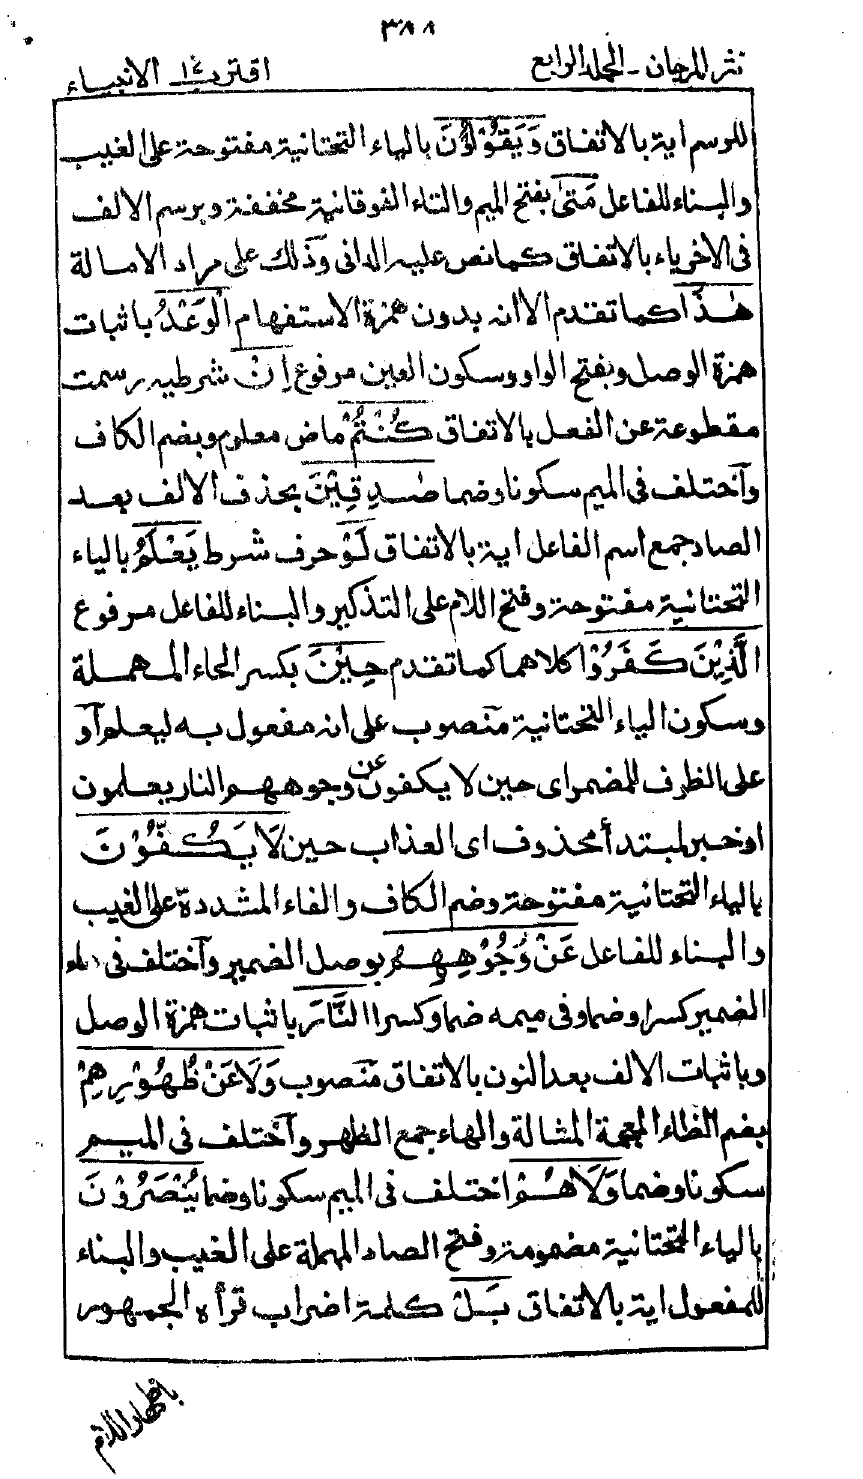 ٣٨٨
نثر المرجان ـ المجلد الرابع
اقترب ١٧ الانبياء
للرسم اية بالاتفاق وَيَقُوْلُوْنَ بالياء التحتانية مفتوحة على الغيب
والبناء للفاعل مَتٰى بفتح الميم والتاء الفوقانية مخففة وبرسم الالف
فى الاخر ياء بالاتفاق كما نص عليه الدانى وذلك على مراد الامالة
هٰذَا كما تقدم الا انه بدون همزة الاستفهام الْوَعْدُ باثبات
همزة الوصل وبفتح الواو وسكون العين مرفوع اِنْ شرطيه رسمت
مقطوعة عن الفعل بالاتفاق كُنْتُمْ ماض معلوم وبضم الكاف
وآختلف فى الميم سكونا وضما صٰدِقِيْنَ بحذف الالف بعد
الصاد جمع اسم الفاعل اية بالاتفاق لَوْ حرف شرط يَعْلَمُ بالياء
التحتانية مفتوحة وفتح اللام على التذكير والبناء للفاعل مرفوع
الَّذِيْنَ كَفَرُوْا كلاهما كما تقدم حِيْنَ بكسر الحاء المهملة
وسكون الياء التحتانية منصوب على انه مفعول به ليعلم آو
على الظرف للمضمر اى حين لا يكفون عن وجوههم النار يعلمون
او خبر لمبتدأ محذوف اى العذاب حين لَا يَكُفُّوْنَ
بالياء التحتانية مفتوحة وضم الكاف والفاء المشددة على الغيب
والبناء للفاعل عَنْ وُجُوْهِهِمْ بوصل الضمير وآختلف فى هاء
الضمير كسرا وضما وفى ميمه ضما وكسرا النَّارَ باثبات همزة الوصل
وباثبات الالف بعد النون بالاتفاق منصوب وَلَا عَنْ ظُهُوْرِهِمْ
بضم الظاء المعجمة المشالة والهاء جمع الظهر وآختلف فى الميم
سكونا وضما وَلَا هُمْ اختلف فى الميم سكونا وضما يُنْصَرُوْنَ
بالياء التحتانية مضمومة وفتح الصاد المهملة على الغيب والبناء
للمفعول اية بالاتفاق بَلْ كلمة اضراب قرأه الجمهور
باظهار اللام